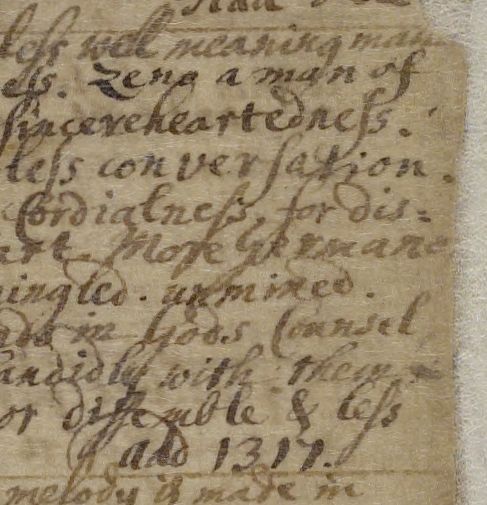 leſs wel meaning man
eſs. Zeno a man of
ſincereheartedneſs.
leſs converſation.
Cordialneſs, for diſ=
art. More Germane
mingled. unmixed.
in Gods Counsel,
candidly with them
or diſſemble & leſs
add 1317.
melody is made in